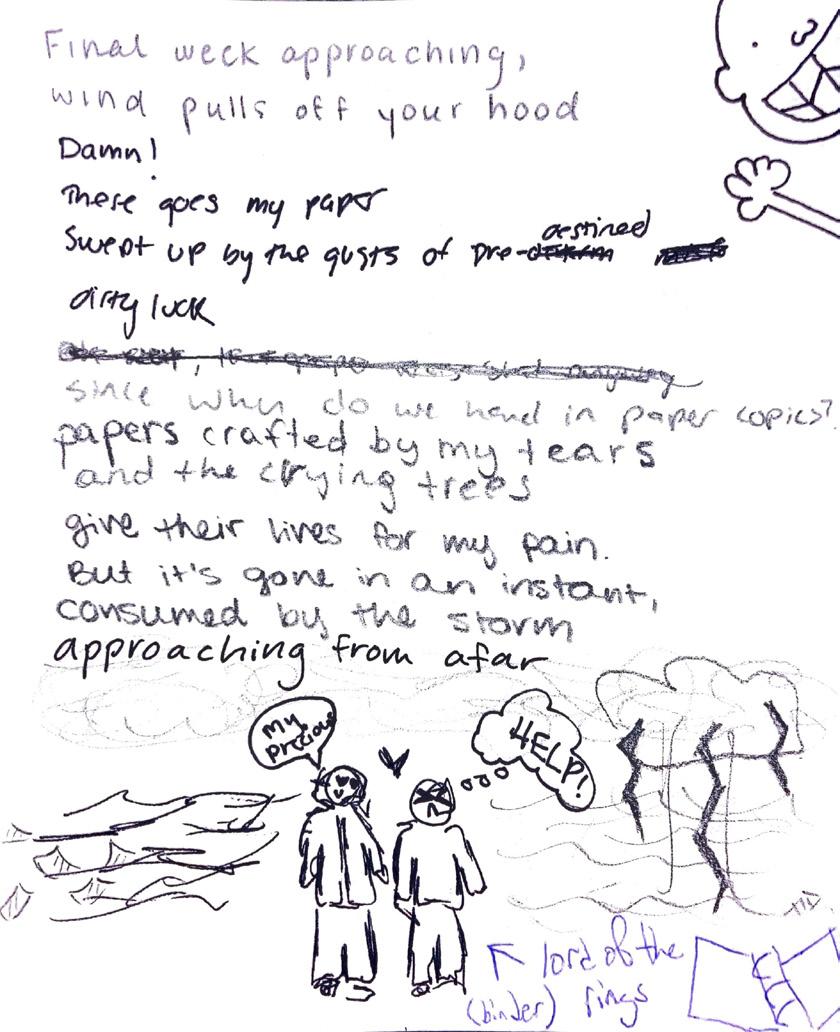 Final week approaching,
wind pulls off your hood
Damn!
There goes my paper
Swept up by the gusts of pre-destined
dirty luck
since when do we hand in paper copies?
papers crafted by my tears
and the crying trees
give their lives for my pain.
But it's gone in an instant,
consumed by the storm
approaching from afar
My
precious
HELP!
lord of the
(binder) rings